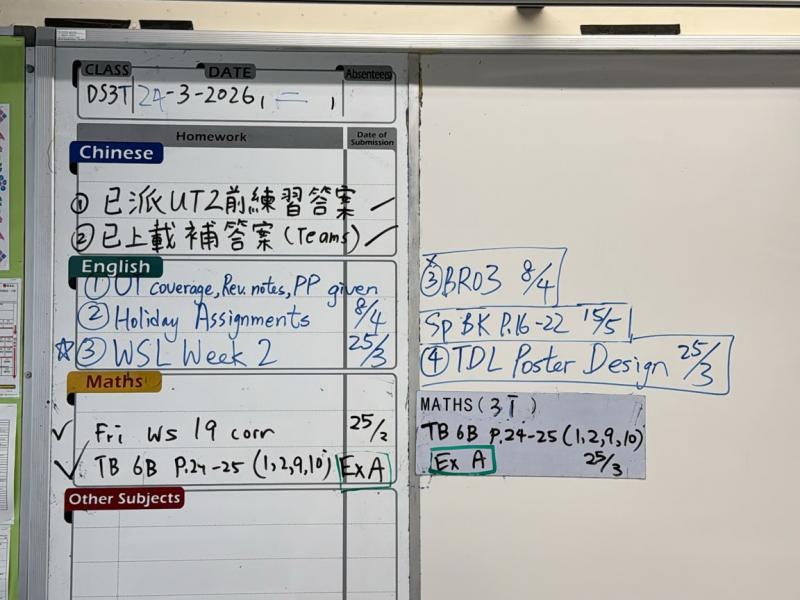 CLASS DATE Absentee(s)
DS3T 24-3-2026, 二 ,
Homework Date of Submission
Chinese
① 已派UT2前練習答案
② 已上載補答案(Teams)
English
① UT coverage, Rev. notes, PP given
② Holiday Assignments 8/4
☆ ③ WSL Week 2 25/3
③ BR03 8/4
Sp BK P.16-22 15/5
④ TDL Poster Design 25/3
Maths
✓ Fri WS 19 corr 25/2
✓ TB 6B P.24-25 (1,2,9,10) Ex A
MATHS(3T)
TB 6B P.24-25 (1,2,9,10)
Ex A 25/3
Other Subjects